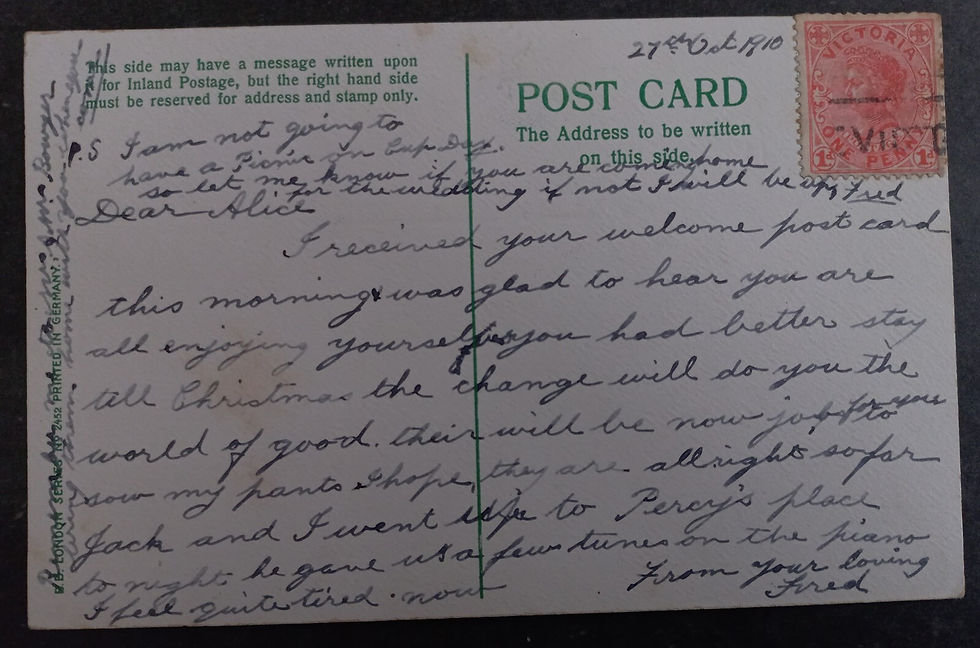 This side may have a message written upon
it for Inland Postage, but the right hand side
must be reserved for address and stamp only.
27th Oct 1910
POST CARD
The Address to be written
on this side.
VICTORIA
1d ONE PENNY 1d
VICTO
P.S I am not going to
have a Picnic on Cup Day.
so let me know if you are coming home
for the wedding if not I will be up, Fred
Dear Alice
I received your welcome post card
this morning & was glad to hear you are
all enjoying yourselves you had better stay
till Christmas the change will do you the
world of good. their will be now job for you to
sow my pants I hope, they are allright sofar
Jack and I went to Percy's place
to night he gave us a few tunes on the piano
I feel quite tired now
From your loving
Fred
Remember me to Mrs & Mrs Dwyer
bring them home with you when you
come
LONDON SERIES No 2452 PRINTED IN GERMANY.